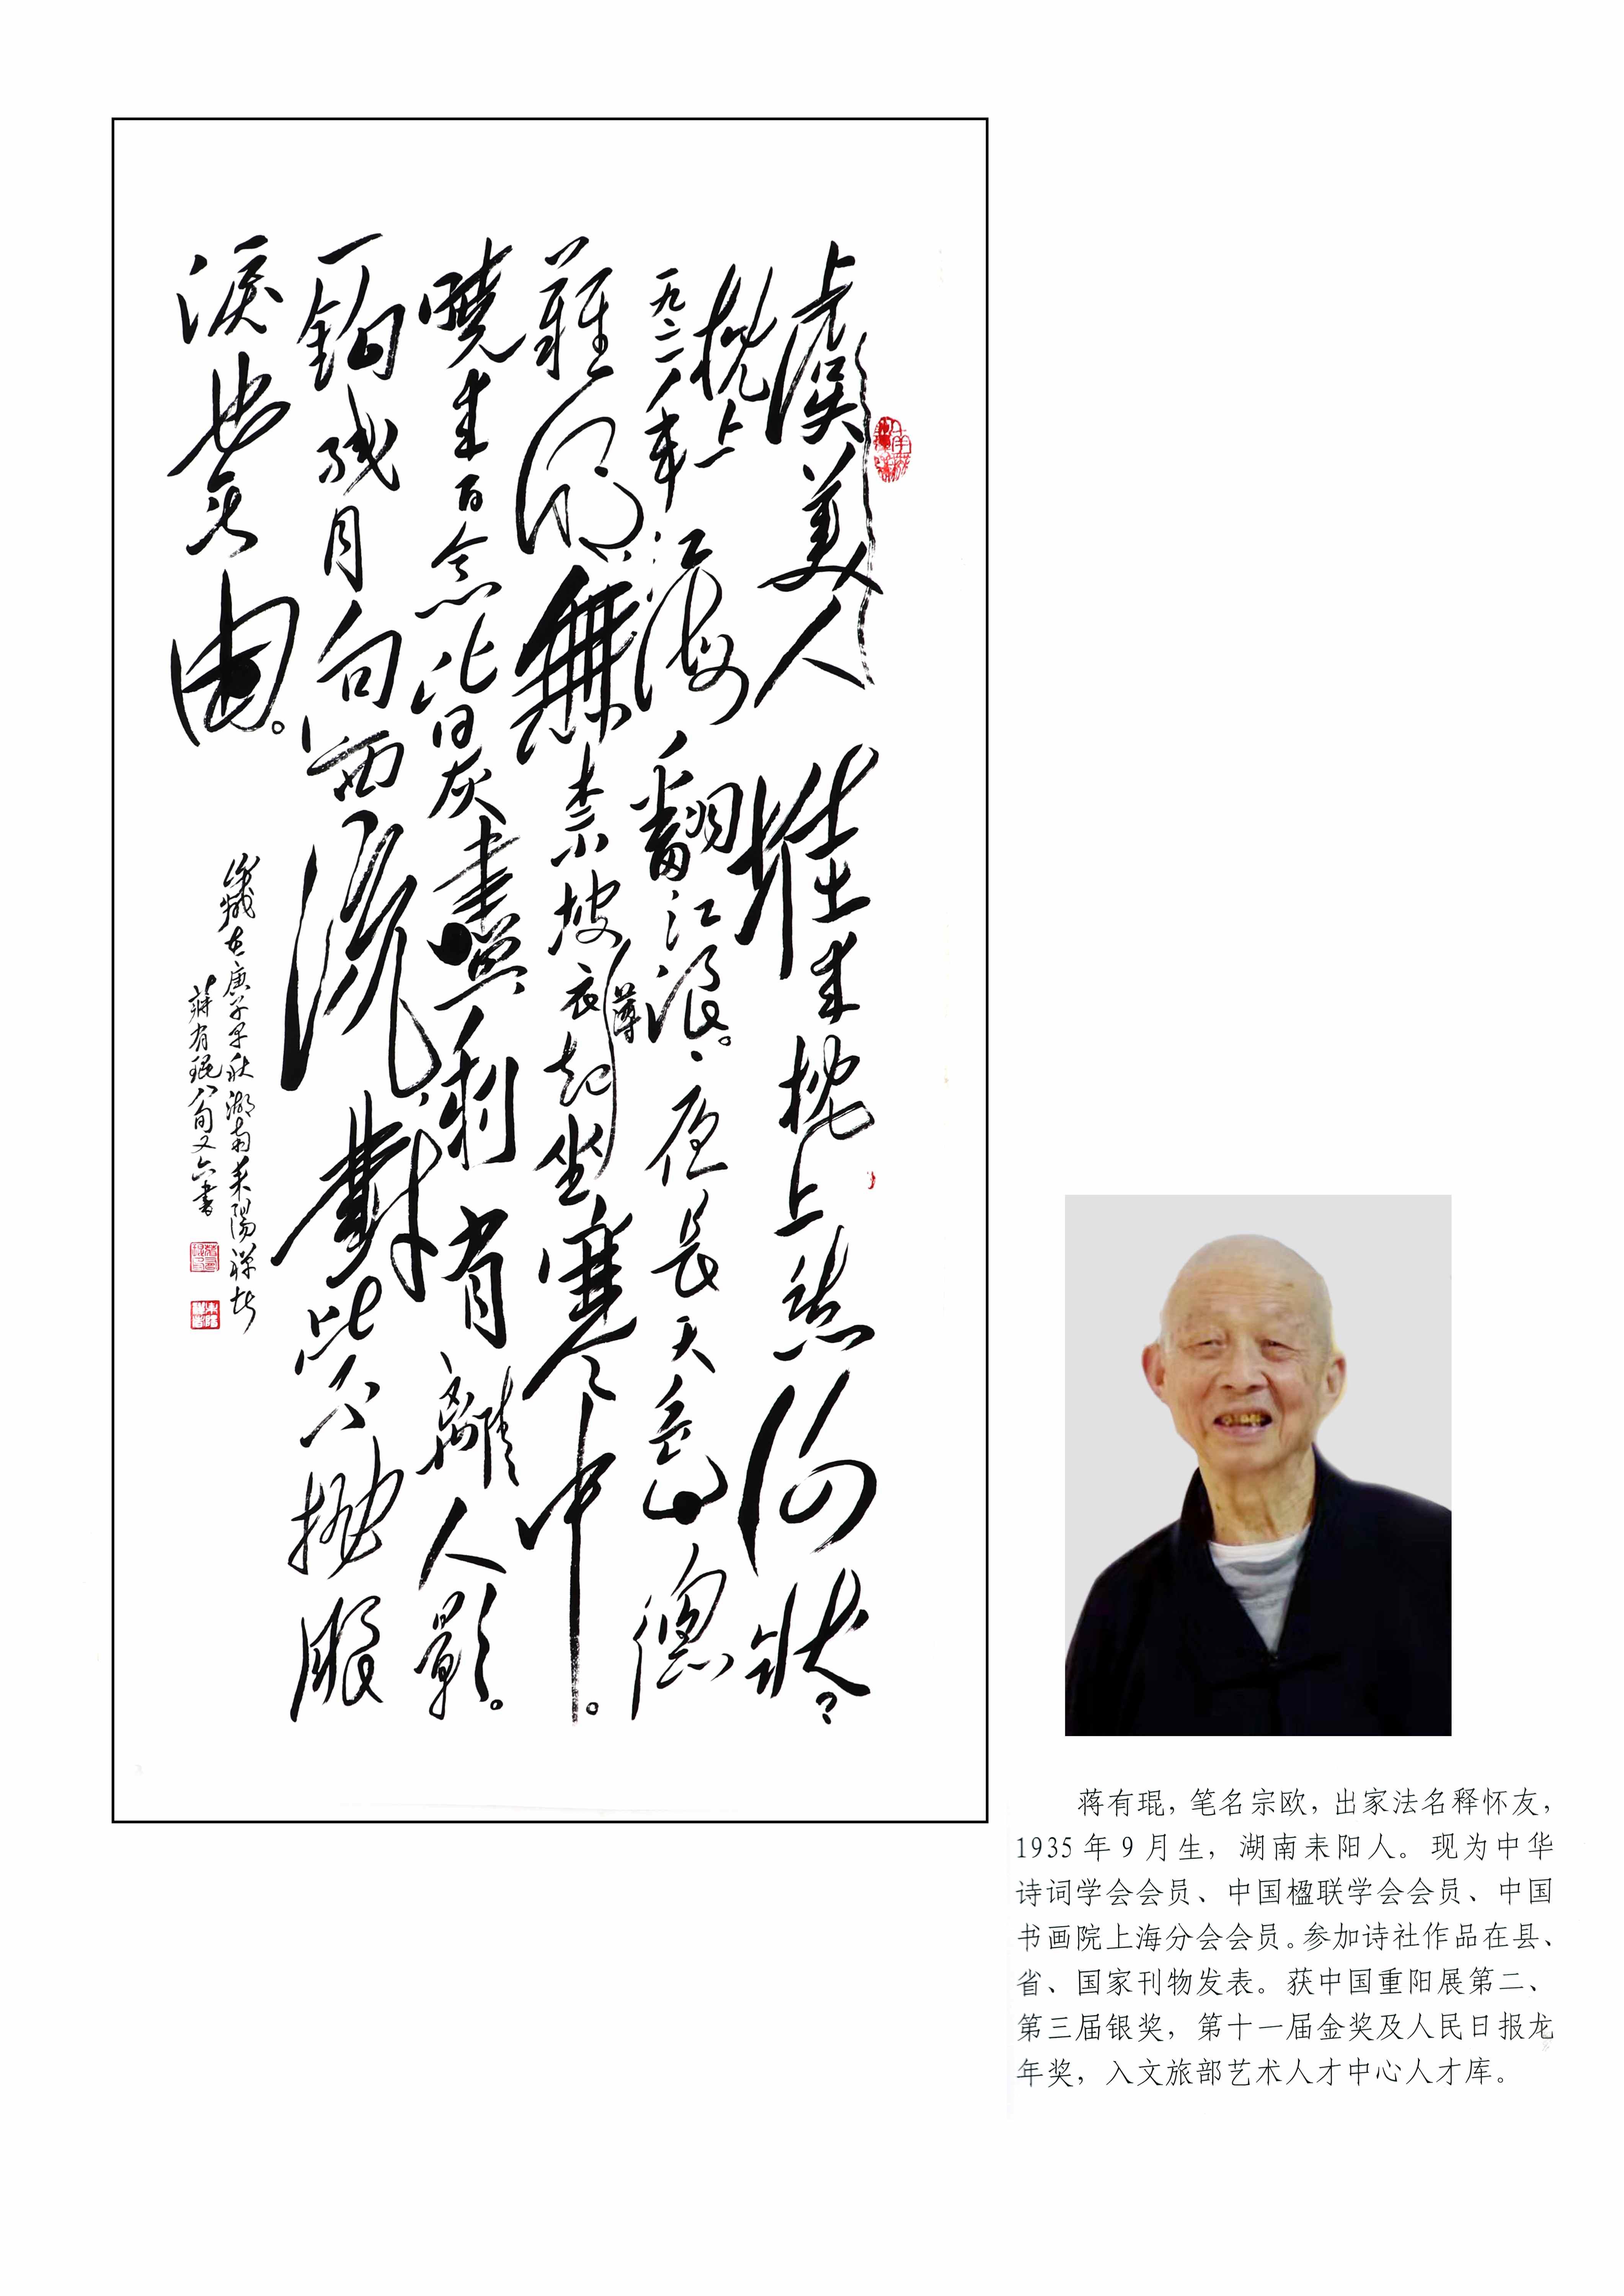 虞美人 堆来枕上愁何状，
枕上
一九二一年
江海翻江浪。夜長天色總
難明，無柰披衣起坐薄寒中。
曉来百念皆灰盡剩有離人影。
一鈎残月向西流，對此不抛眼
淚也无由。
歲在庚子早秋湖南耒陽禅者
蔣有琨八旬又六書
蒋有琨，笔名宗欧，出家法名释怀友，
1935年9月生，湖南耒阳人。现为中华
诗词学会会员、中国楹联学会会员、中国
书画院上海分会会员。参加诗社作品在县、
省、国家刊物发表。获中国重阳展第二、
第三届银奖，第十一届金奖及人民日报龙
年奖，入文旅部艺术人才中心人才库。